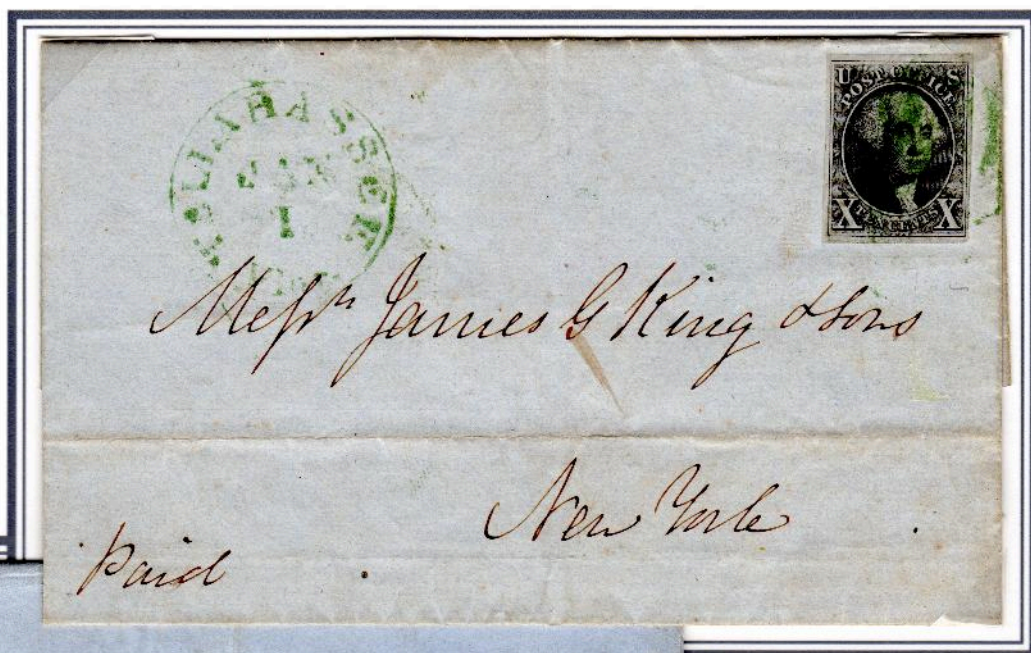 TALLAHASSEE
JAN
1
U S
POST OFFICE
X TEN CENTS X
Messrs James G King & Sons
New York
Paid